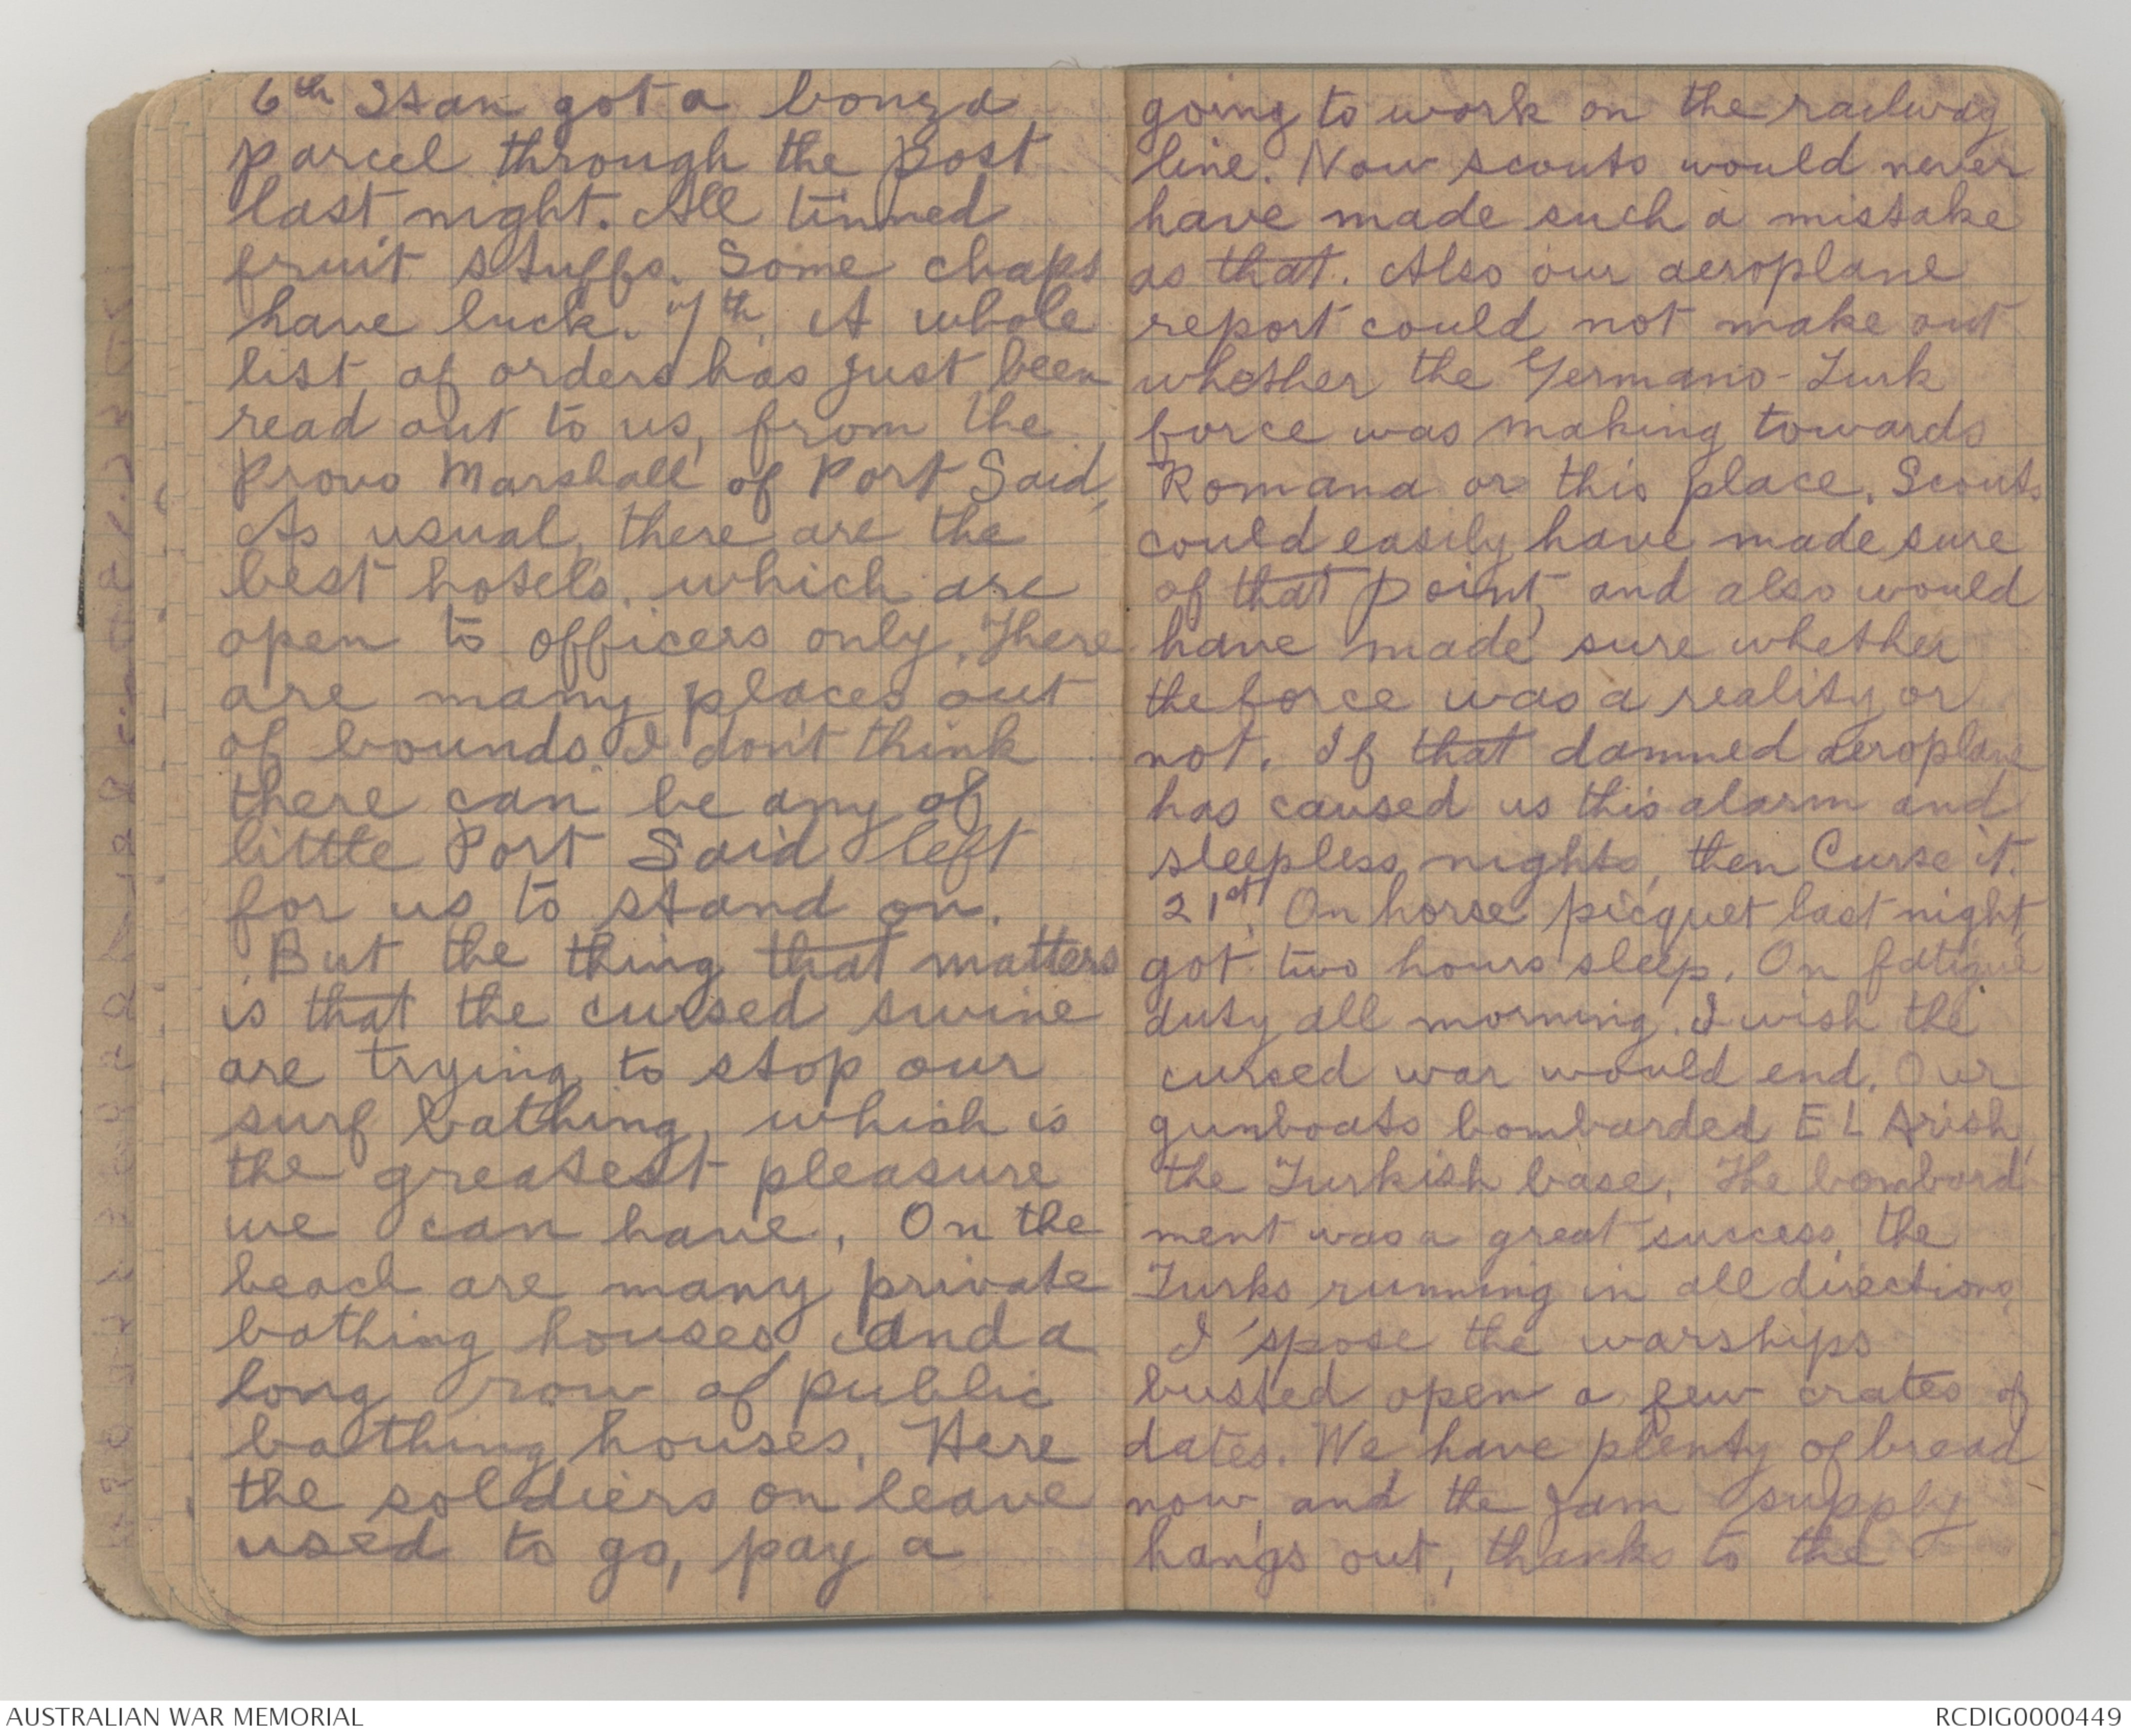 6th Stan got a bonza
parcel through the post
last night. All tinned
fruit stuffs. Some chaps
have luck. 7th. A whole
list of orders has just been
read out to us, from the
Provo Marshall of Port Said,
As usual, there are the
best hotels, which are
open to officers only. There
are many places out
of bounds. I don't think
there can be any of
little Port Said left
for us to stand on.
But the thing that matters
is that the cursed swine
are trying to stop our
surf bathing, which is
the greatest pleasure
we can have. On the
beach are many private
bathing houses and a
long row of public
bathing houses. Here
the soldiers on leave
used to go, pay a
going to work on the railway
line. Now scouts would never
have made such a mistake
as that. Also our aeroplane
report could not make out
whether the Germano-Turk
force was making towards
Romana or this place. Scouts
could easily have made sure
of that point, and also would
have made sure whether
the force was a reality or
not. If that damned aeroplane
has caused us this alarm and
sleepless nights, then Curse it.
21st. On horse picquet last night,
got two hours sleep. On fatigue
duty all morning. I wish the
cursed war would end. Our
gunboats bombarded EL Arish,
the Turkish base. The bombard
ment was a great success, the
Turks running in all directions,
I 'spose the warships
busted open a few crates of
dates. We have plenty of bread
now, and the jam supply
hangs out, thanks to the
AUSTRALIAN WAR MEMORIAL
RCDIG0000449